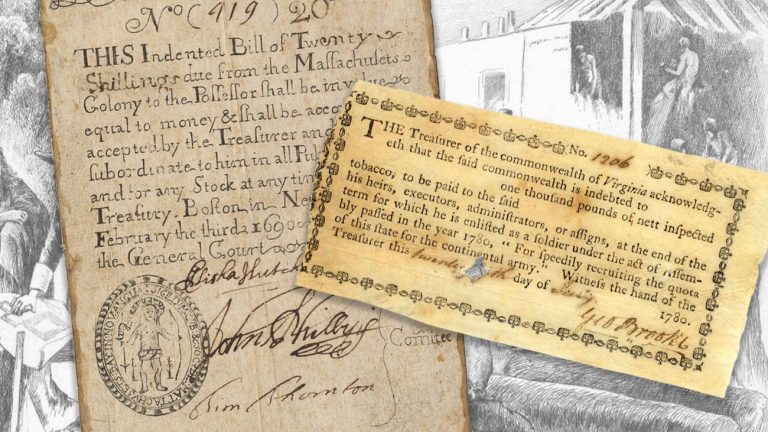 No (919) 20s
THIS Indented Bill of Twenty
Shillings due from the Massachusets
Colony to the Possessor shall be in value
equal to money & shall be acco
accepted by the Treasurer and
subordinate to him in all Pu
and for any Stock at any time
Treasury. Boston in New
February the third 1690
the General Court
Elisha Hutch
John Phillips
Comtee
Tim Thornton
No. 1206
THE Treasurer of the commonwealth of Virginia acknowledg-
eth that the said commonwealth is indebted to
one thousand pounds of nett inspected
tobacco, to be paid to the said
his heirs, executors, administrators, or assigns, at the end of the
term for which he is enlisted as a soldier under the act of Assem-
bly passed in the year 1780, "For speedily recruiting the quota
of this state for the continental army." Witness the hand of the
Treasurer this day of 1780.
Geo Brooke